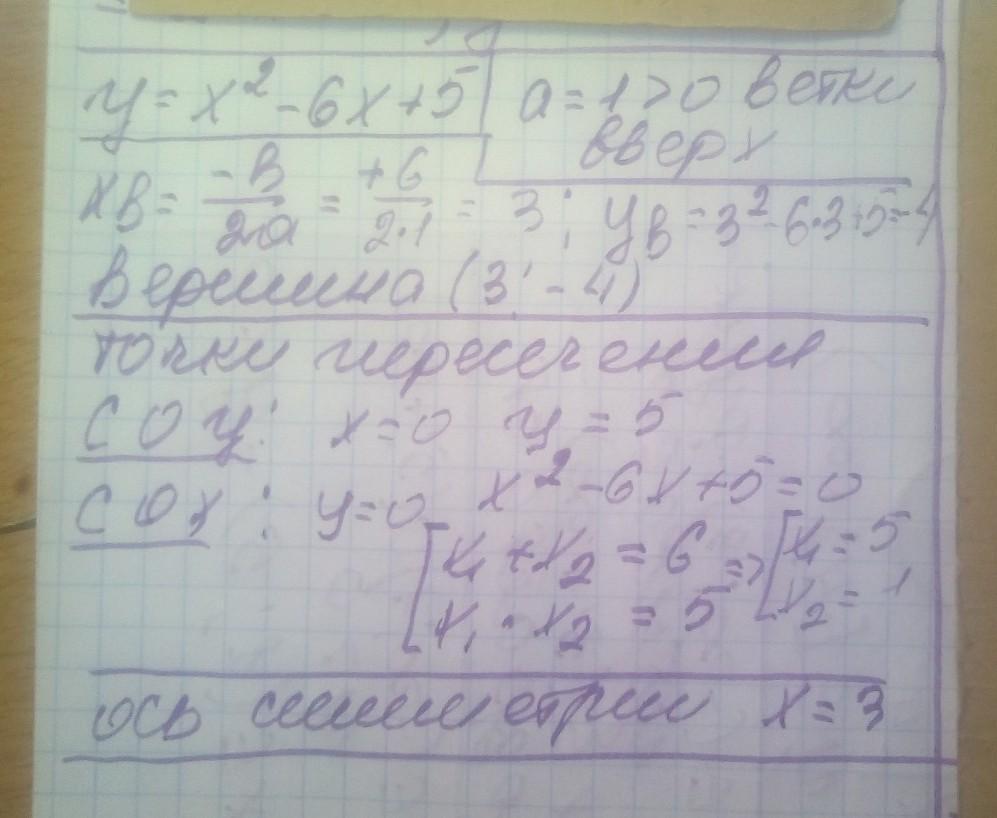 y = x² - 6x + 5
a = 1 > 0 ветки
вверх
xв = -в/2a = +6/2·1 = 3; yв = 3² - 6·3 + 5 = -4
Вершина (3; -4)
точки пересечения
С Оy: x = 0 y = 5
С Оx: y = 0 x² - 6x + 5 = 0
[x₁ + x₂ = 6 => [x₁ = 5
[x₁ · x₂ = 5 [x₂ = 1
ось симметрии x = 3